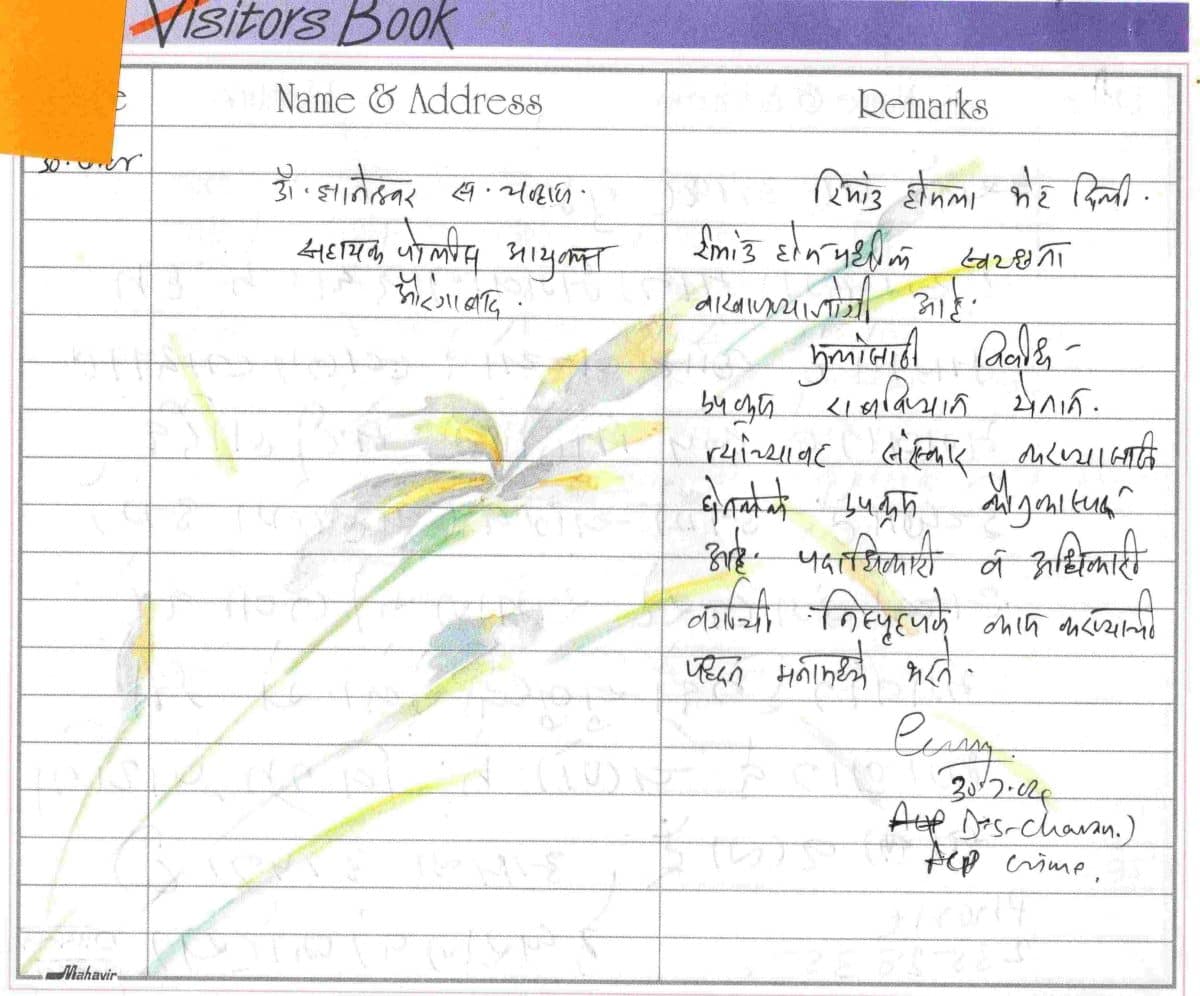 Visitors Book
Name & Address
Remarks
डॉ. ज्ञानेश्वर स. चव्हाण.
सहायक पोलीस आयुक्त
औरंगाबाद.
रिमांड होमला भेट दिली.
रीमांड होममधील स्वच्छता
वाखाणण्याजोगी आहे.
मुलांसाठी विविध
उपक्रम राबविण्यात येतात.
त्यांच्यावर संस्कार करण्यासाठी
घेतलेले उपक्रम कौतुकास्पद
आहे. पदाधिकारी व अधिकारी
वर्गाची निस्पृहपणे काम करण्याची
पद्धत मनामध्ये भरते.
D.S. Chavan.)
ACP crime,
Mahavir